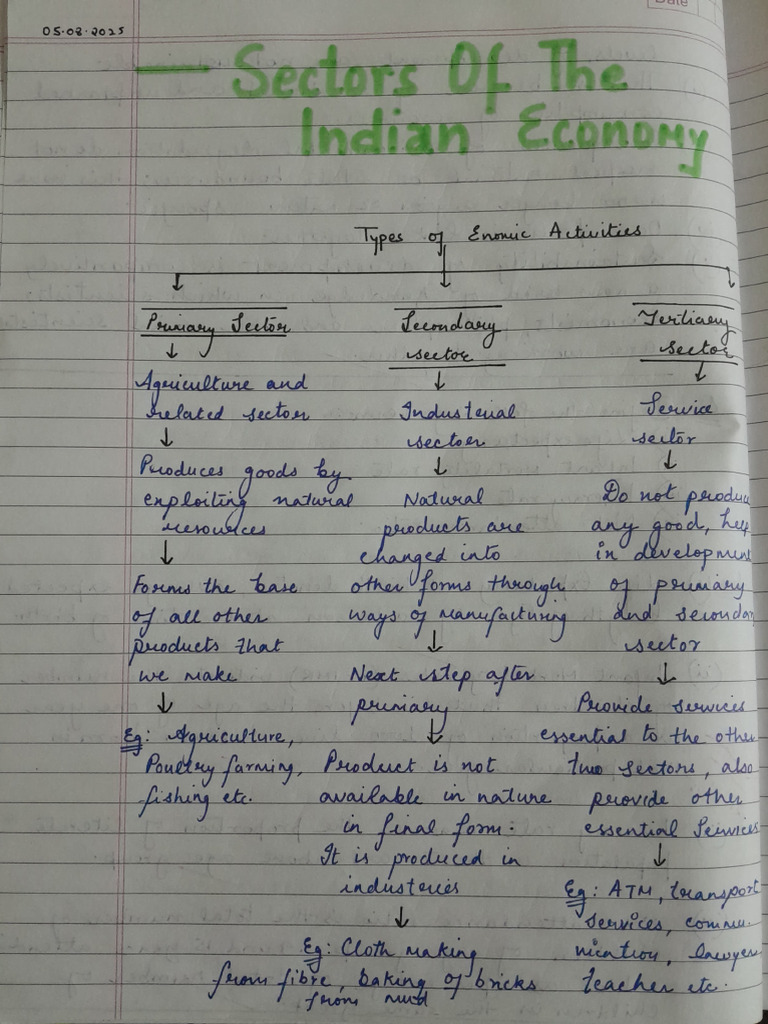 Date
05.02.2025
Sectors Of The
Indian Economy
Types of Enomic Activities
Primary Sector
Agriculture and
related sector
Produces goods by
exploiting natural
resources
Forms the base
of all other
products that
we make
Eg: Agriculture,
Poultry farming,
fishing etc.
Secondary
sector
Industrial
sector
Natural
products are
changed into
other forms through
ways of manufacturing
Next step after
primary
Product is not
available in nature
in final form.
It is produced in
industeries
Eg: Cloth making
from fibre, baking of bricks
from mud
Tertiary
sector
Service
sector
Do not produ
any good, help
in development
of primary
and secondar
sector
Provide services
essential to the other
two sectors, also
provide other
essential Services
Eg: ATM, transport
services, commu-
nication, lawyer
teacher etc.